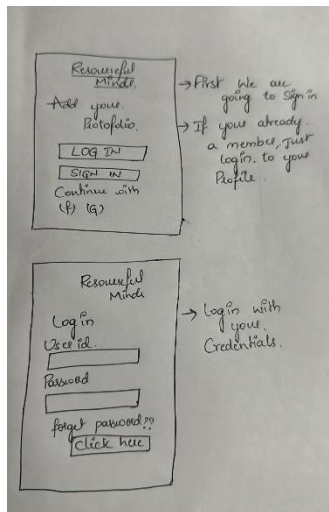 Resourceful
Minds.
Add your
Protofolio.
LOG IN
SIGN IN
Continue with
(f) (G)
→ First we are
going to Sign in
→ If your already
a member, Just
login. to your
Profile.
Resourceful
Minds
Login
User id.
Password
forget password??
Click here
→ Login with
your
Credentials.